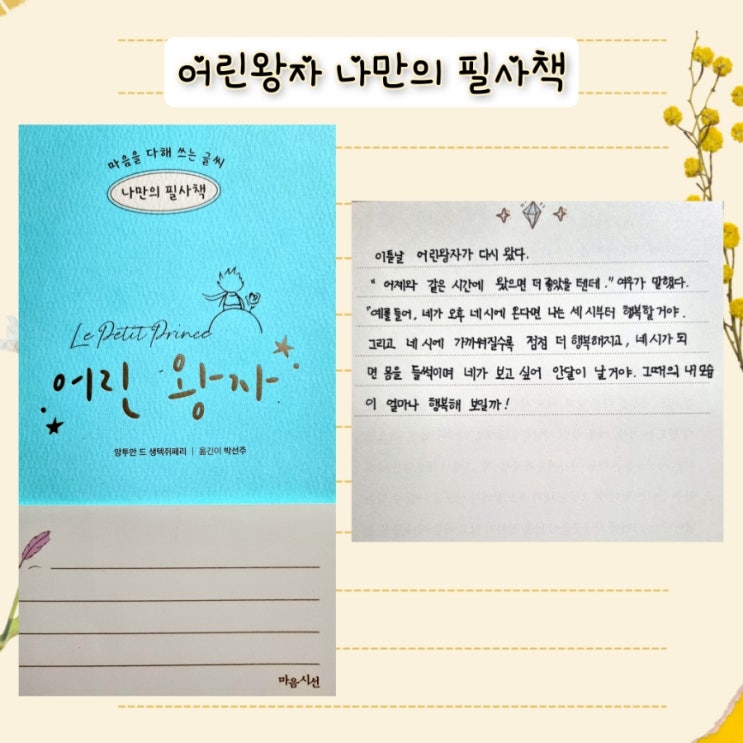 어린왕자 나만의 필사책
마음을 다해 쓰는 글씨
나만의 필사책
Le Petit Prince
어린 왕자
앙투안 드 생텍쥐페리 | 옮긴이 박선주
마음시선
이튿날 어린왕자가 다시 왔다.
"어제와 같은 시간에 왔으면 더 좋았을 텐데." 여우가 말했다.
"예를 들어, 네가 오후 네 시에 온다면 나는 세 시부터 행복할 거야.
그리고 네 시에 가까워질수록 점점 더 행복해지고, 네 시가 되
면 몸을 들썩이며 네가 보고 싶어 안달이 날 거야. 그때의 내 모습
이 얼마나 행복해 보일까!